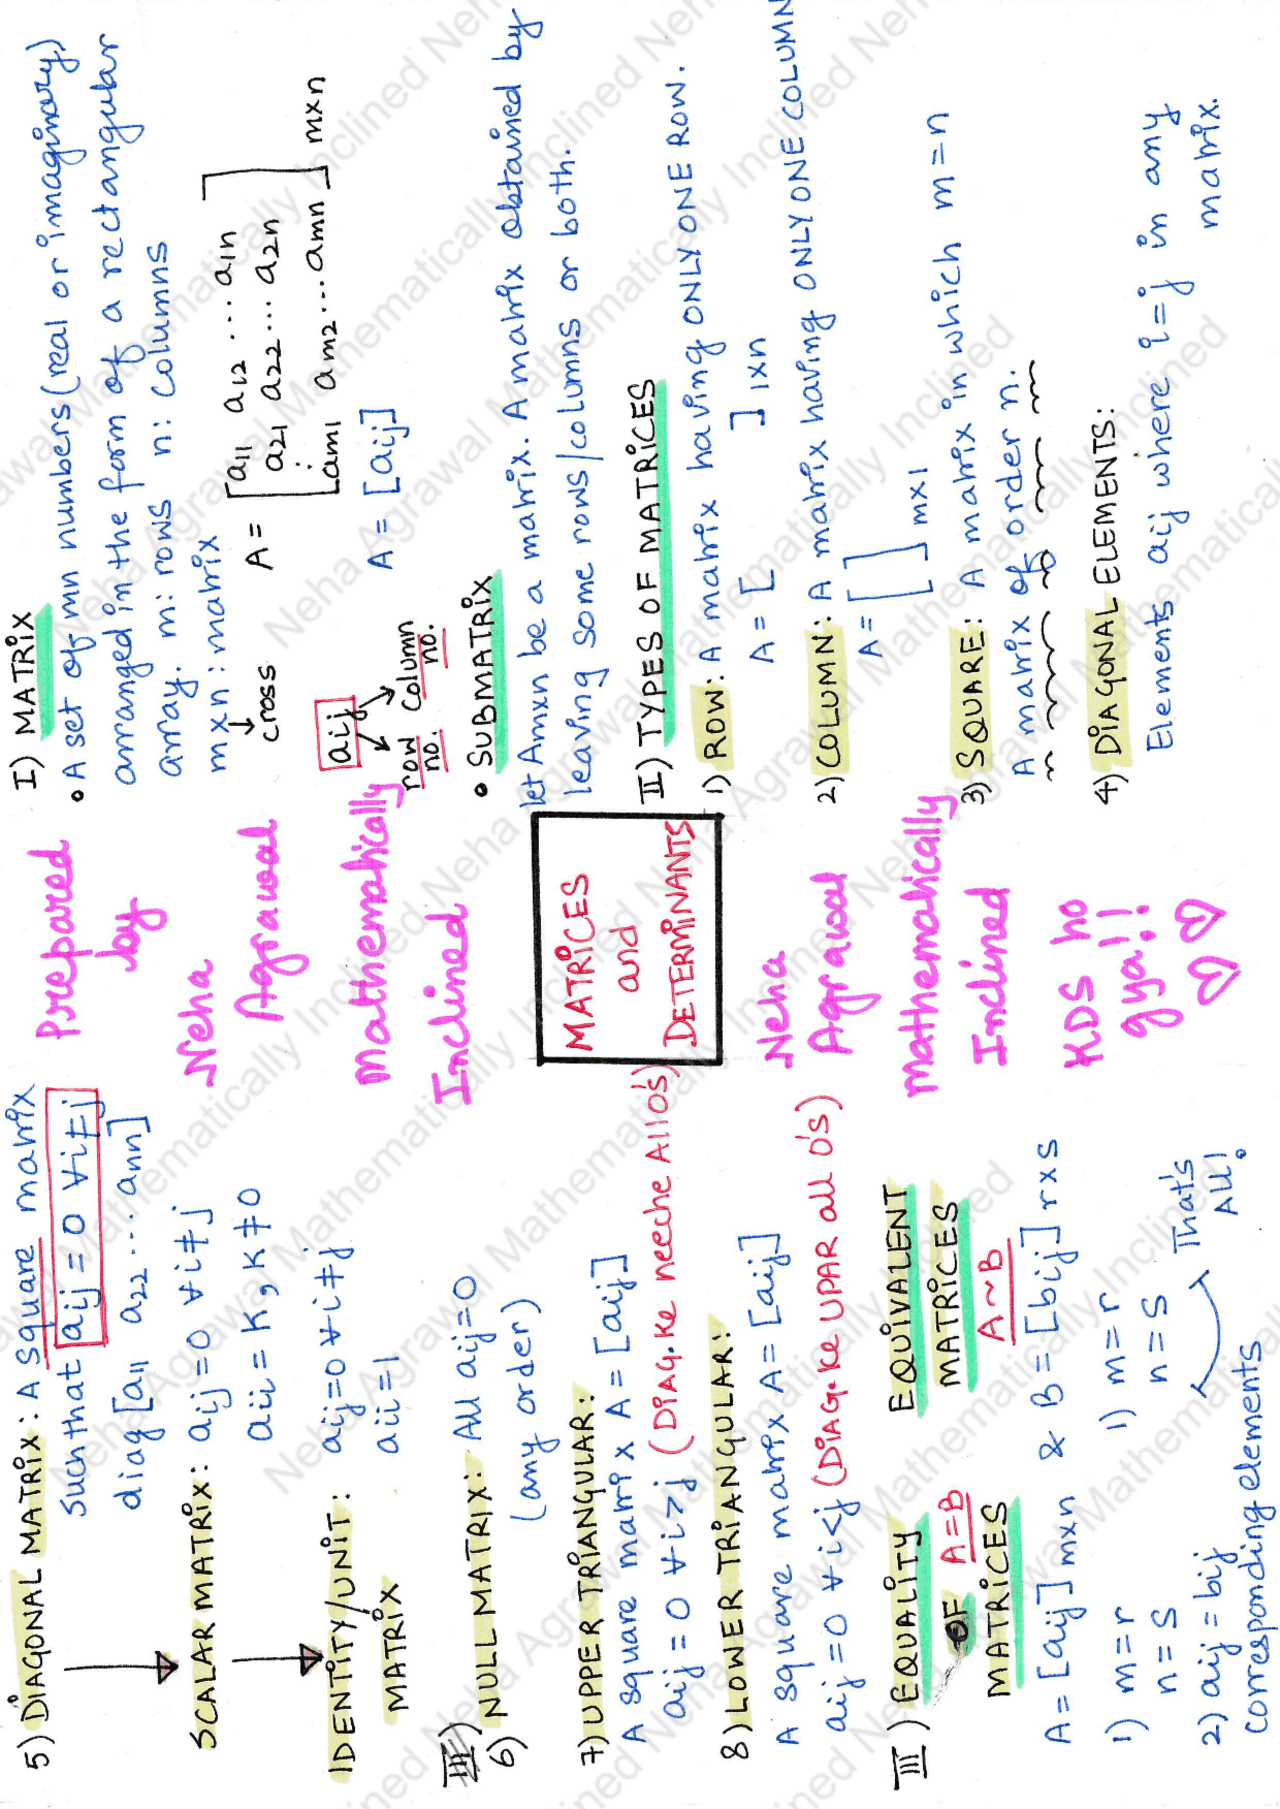 I) MATRIX
• A set of mn numbers (real or imaginary)
arranged in the form of a rectangular
array. m: rows n: columns
mxn: matrix
cross
A = [a11 a12 ... a1n
a21 a22 ... a2n
⋮
am1 am2 ... amn] mxn
aij
row no. column no.
A = [aij]
• SUBMATRIX
let Amxn be a matrix. A matrix obtained by
leaving some rows/columns or both.
II) TYPES OF MATRICES
1) ROW: A matrix having ONLY ONE ROW.
A = [ ] 1xn
2) COLUMN: A matrix having ONLY ONE COLUMN
A = [ ] mx1
3) SQUARE: A matrix in which m = n
A matrix of order n.
4) DIAGONAL ELEMENTS:
Elements aij where i=j in any
matrix.
Prepared
by
Neha
Agrawal
Mathematically
Inclined
MATRICES
and
DETERMINANTS
Neha
Agrawal
Mathematically
Inclined
KDS ho
gya!!
5) DIAGONAL MATRIX: A square matrix
such that aij = 0 ∀ i≠j
diag [a11 a22 ... ann]
SCALAR MATRIX: aij = 0 ∀ i≠j
aii = K, K≠0
IDENTITY/UNIT: aij=0 ∀ i≠j
MATRIX aii=1
III)
6) NULL MATRIX: All aij=0
(any order)
7) UPPER TRIANGULAR:
A square matrix A = [aij]
aij = 0 ∀ i>j (DIAG. Ke neeche All 0's)
8) LOWER TRIANGULAR:
A square matrix A = [aij]
aij = 0 ∀ i<j (DIAG. Ke UPAR all 0's)
III) EQUALITY
OF A=B
MATRICES
EQUIVALENT
MATRICES
A~B
A = [aij] mxn & B = [bij] rxs
1) m=r
n=s
2) aij = bij
corresponding elements
1) m=r
n=s
That's
All!
Neha Agrawal Mathematically Inclined